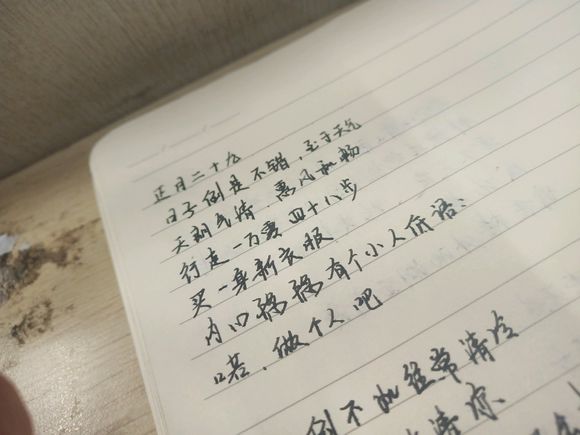 正月二十九
日子倒是不错，至于天气
天朗气清，惠风和畅
行走一万零四十八步
买一身新衣服
内口袋揣有个小人低语：
喏，做个人吧
倒不如往常清冷
清凉